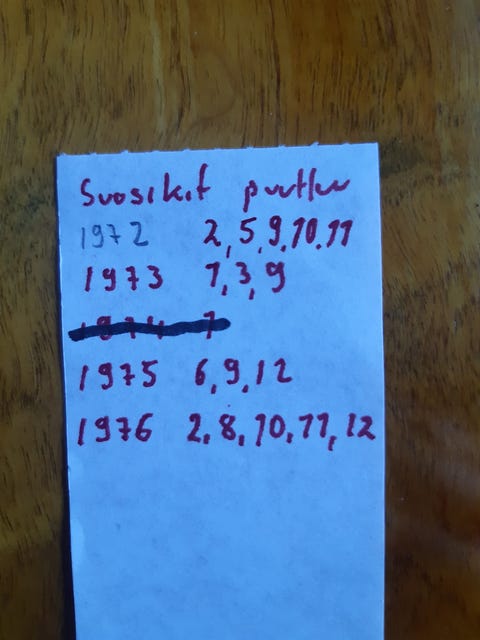 Suosikit puuttuu
1972 2, 5, 9, 10, 11
1973 1, 3, 9
1974 1
1975 6, 9, 12
1976 2, 8, 10, 11, 12